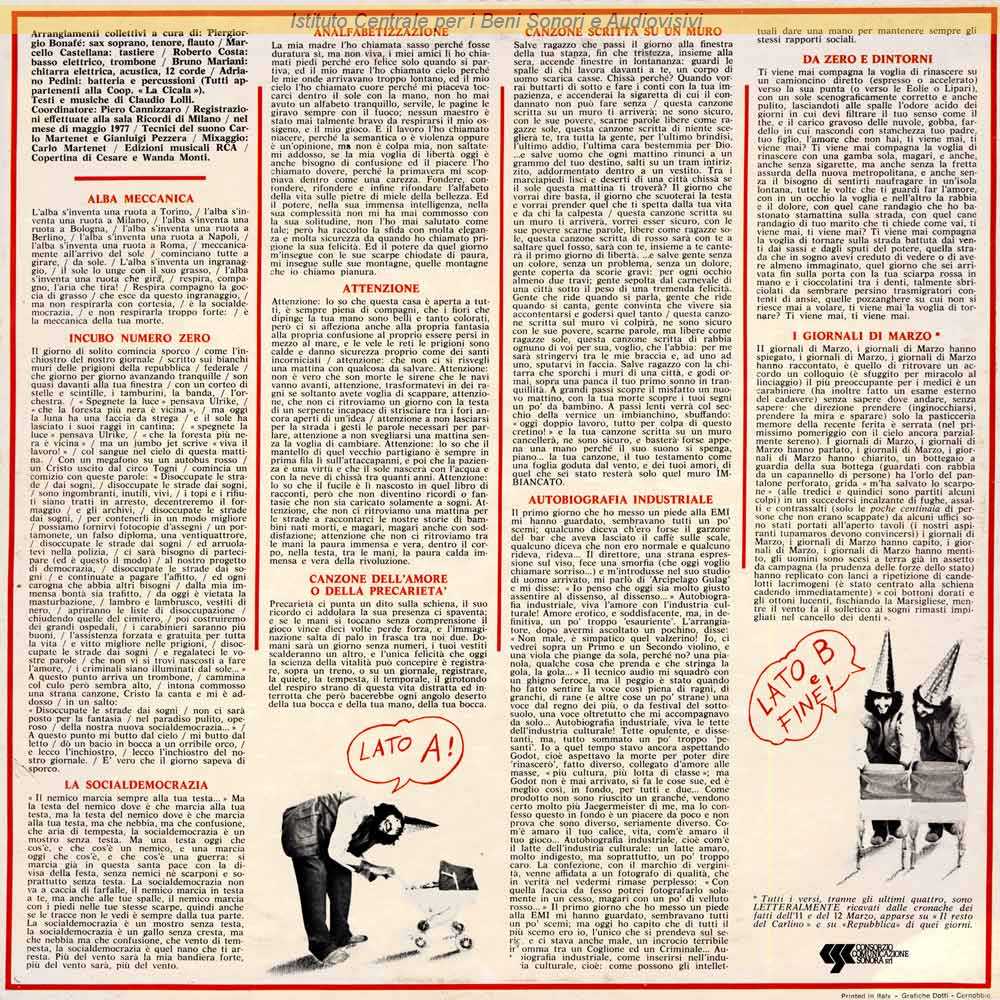 Istituto Centrale per i Beni Sonori e Audiovisivi
Arrangiamenti collettivi a cura di: Piergior-
gio Bonafé: sax soprano, tenore, flauto / Mar-
cello Castellana: tastiere / Roberto Costa:
basso elettrico, trombone / Bruno Mariani:
chitarra elettrica, acustica, 12 corde / Adria-
no Pedini: batteria e percussioni (Tutti ap-
partenenti alla Coop. « La Cicala »).
Testi e musiche di Claudio Lolli.
Coordinatore: Piero Cannizzaro / Registrazio-
ni effettuate alla sala Ricordi di Milano / nel
mese di maggio 1977 / Tecnici del suono Car-
lo Martenet e Gianluigi Pezzera / Mixaggio
Carlo Martenet / Edizioni musicali RCA /
Copertina di Cesare e Wanda Monti.
ALBA MECCANICA
L'alba s'inventa una ruota a Torino, / l'alba s'in-
venta una ruota a Milano, / l'alba s'inventa una
ruota a Bologna, / l'alba s'inventa una ruota a
Berlino, / l'alba s'inventa una ruota a Napoli, /
l'alba s'inventa una ruota a Roma, / meccanica-
mente all'arrivo del sole / cominciano tutte a
girare, / da sole. / L'alba s'inventa un ingranag-
gio, / il sole lo unge con il suo grasso, / l'alba
s'inventa una ruota che gira, / respira, compa-
gno, l'aria che tira! / Respira compagno la goc-
cia di grasso / che esce da questo ingranaggio, /
ma non respirarla con cortesia, / è la socialde-
mocrazia, / e non respirarla troppo forte: / è
la meccanica della tua morte.
INCUBO NUMERO ZERO
Il giorno di solito comincia sporco / come l'in-
chiostro del nostro giornale / scritto sui bianchi
muri delle prigioni della repubblica / federale /
che giorno per giorno avanzando tranquille / son
quasi davanti alla tua finestra / con un corteo di
stelle e scintille, i tamburini, la banda, / l'or-
chestra. / « Spegnete la luce » pensava Ulrike, /
« che la foresta più nera è vicina », / ma oggi
la luna ha una faccia da strega / e il sole ha
lasciato i suoi raggi in cantina; / « spegnete la
luce » pensava Ulrike, / « che la foresta più ne-
ra è vicina » / ma un jet scrive « viva il
lavoro! » / col sangue nel cielo di questa matti-
na. / Con un megafono su un autobus rosso /
un Cristo uscito dal circo Togni / comincia un
comizio con queste parole: « Disoccupate le stra-
de / dai sogni, / disoccupate le strade dai sogni,
/ sono ingombranti, inutili, vivi, / i topi e i rifiu-
ti siano tratti in arresto, decentreremo il for-
maggio / e gli archivi, / disoccupate le strade
dai sogni, / per contenerli in un modo migliore
/ possiamo fornirvi fotocopie d'assegni / un por-
tamonete, un falso diploma, una ventiquattrore,
/ disoccupate le strade dai sogni / ed arruola-
tevi nella polizia, / ci sarà bisogno di parteci-
pare (ed è questo il modo) / al nostro progetto
di democrazia, / disoccupate le strade dai so-
gni / e continuate a pagare l'affitto, / ed ogni
carogna che abbia altri bisogni / dalla mia im-
mensa bontà sia trafitto, / da oggi è vietata la
masturbazione, / lambro e lambrusco, vestiti di
nero, / apriranno le liste di disoccupazione /
chiudendo quelle del cimitero, / poi costruiremo
dei grandi ospedali, / i carabinieri saranno più
buoni, / l'assistenza forzata e gratuita per tutta
la vita / e vitto migliore nelle prigioni, / disoc-
cupate le strade dai sogni / e regalateci le vo-
stre parole / che non vi si trovi nascosti a fare
l'amore, / i criminali siano illuminati dal sole... »
A questo punto arriva un trombone, / cammina
col culo però sembra alto, / intona commosso
una strana canzone, Cristo la canta e mi è ad-
dosso / in un salto:
« Disoccupate le strade dai sogni / non ci sarà
posto per la fantasia / nel paradiso pulito, ope-
roso / della nostra nuova socialdemocrazia... » /
A questo punto mi butto dal cielo / mi butto dal
letto / dò un bacio in bocca a un orribile orco, /
e lecco l'inchiostro, / lecco l'inchiostro del no-
stro giornale. / E' vero che il giorno sapeva di
sporco.
LA SOCIALDEMOCRAZIA
« Il nemico marcia sempre alla tua testa... » Ma
la testa del nemico dove è che marcia alla tua
testa, ma la testa del nemico dove è che marcia
alla tua testa, ma che nebbia, ma che confusione,
che aria di tempesta, la socialdemocrazia è un
mostro senza testa. Ma una testa oggi che
cos'è, e che cos'è un nemico, e una marcia
oggi che cos'è, e che cos'è una guerra: si
marcia già in questa santa pace con la di-
visa della festa, senza nemici né scarponi e so-
prattutto senza testa. La socialdemocrazia non
va a caccia di farfalle, il nemico marcia in testa
a te, ma anche alle tue spalle, il nemico marcia
con i piedi nelle tue stesse scarpe, quindi anche
se le tracce non le vedi è sempre dalla tua parte.
La socialdemocrazia è un mostro senza testa,
la socialdemocrazia è un gallo senza cresta, ma
che nebbia ma che confusione, che vento di tem-
pesta, la socialdemocrazia è quel nano che ti ar-
resta. Più del vento sarà la mia bandiera forte,
più del vento sarà, più del vento.
ANALFABETIZZAZIONE
La mia madre l'ho chiamata sasso perché fosse
duratura sì, ma non viva, i miei amici li ho chia-
mati piedi perché ero felice solo quando si par-
tiva, ed il mio mare l'ho chiamato cielo perché
le mie onde arrivavano troppo lontano, ed il mio
cielo l'ho chiamato cuore perché mi piaceva toc-
carci dentro il sole con la mano, non ho mai
avuto un alfabeto tranquillo, servile, le pagine le
giravo sempre con il fuoco; nessun maestro è
stato mai talmente bravo da respirarsi il mio os-
sigeno, e il mio gioco. E il lavoro l'ho chiamato
piacere, perché la semantica o è violenza oppure
è un'opinione, ma non è colpa mia, non saltate-
mi addosso, se la mia voglia di libertà oggi è
anche bisogno di confusione ed il piacere l'ho
chiamato dovere, perché la primavera mi scop-
piava dentro come una carezza. Fondere, con-
fondere, rifondere e infine rifondare l'alfabeto
della vita sulle pietre di miele della bellezza. Ed
il potere, nella sua immensa intelligenza, nella
sua complessità non mi ha mai commosso con
la sua solitudine, non l'ho mai salutato come
tale; però ha raccolto la sfida con molta elegan-
za e molta sicurezza da quando ho chiamato pri-
gione la sua felicità. Ed il potere da quel giorno
m'insegue con le sue scarpe chiodate di paura,
mi insegue sulle sue montagne, quelle montagne
che io chiamo pianura.
ATTENZIONE
Attenzione: lo so che questa casa è aperta a tut-
ti, è sempre piena di compagni, che i fiori che
dipinge la tua mano sono belli e tanto colorati,
però ci si affeziona anche alla propria fantasia
alla propria confusione al proprio essere persi in
mezzo al mare, e le vele le reti le prigioni sono
calde e danno sicurezza proprio come dei santi
incorniciati / attenzione: che non ci si risvegli
una mattina con qualcosa da salvare. Attenzione:
non è vero che son morte le sirene che le navi
vanno avanti, attenzione, trasformatevi in dei ra-
gni se soltanto avete voglia di scappare, attenzio-
ne, che non ci ritroviamo un giorno con la testa
di un serpente incapace di strisciare tra i fori an-
cora aperti di un'idea / attenzione a non lasciarsi
per la strada i gesti le parole necessari per par-
lare, attenzione a non svegliarsi una mattina sen-
za la voglia di cambiare. Attenzione: lo so che il
mantello di quel vecchio partigiano è sempre in
prima fila lì sull'attaccapanni, e poi che la pazien-
za è una virtù e che il sole nascerà con l'acqua e
con la neve di chissà tra quanti anni. Attenzione:
lo so che il fucile è lì nascosto in quel libro di
racconti, però che non diventino ricordi o fan-
tasie che non sia caricato solamente a sogni. At-
tenzione, che non ci ritroviamo una mattina per
le strade a raccontarci le nostre storie di bam-
bini nati morti, e magari, magari anche con sod-
disfazione; attenzione che non ci ritroviamo tra
le mani la paura immensa e vera, dentro il cor-
po, nella testa, tra le mani, la paura calda im-
mensa e vera della rivoluzione.
CANZONE DELL'AMORE
O DELLA PRECARIETA'
Precarietà ci punta un dito sulla schiena, il suo
ricordo ci addolora la sua presenza ci spaventa;
e se le mani si toccano senza comprensione il
gioco vince dieci volte perde forza, e l'immagi-
nazione salta di palo in frasca tra noi due. Do-
mani sarà un giorno senza numeri, i tuoi vestiti
scalderanno un altro, e l'unica felicità che oggi
la scienza della vitalità può concepire è registra-
re, sopra un treno, o su un giornale, registrare,
la quiete, la tempesta, il temporale, il girotondo
del respiro strano di questa vita distratta ed in-
terrotta che però bacerebbe ogni angolo deserto
della tua bocca e della tua mano, della tua bocca.
LATO A!
CANZONE SCRITTA SU UN MURO
Salve ragazzo che passi il giorno alla finestra
della tua stanza, fin che tristezza, insieme alla
sera, accende finestre in lontananza: guardi le
spalle di chi lavora davanti a te, un corpo di
uomo scarica casse. Chissà perché? Quando vor-
rai buttarti di sotto e fare i conti con la tua im-
pazienza, e accenderai la sigaretta di cui il con-
dannato non può fare senza / questa canzone
scritta su un muro ti arriverà; ne sono sicuro,
con le sue povere, scarne parole libere come ra-
gazze sole, questa canzone scritta di niente sce-
glierà te, tra tutta la gente, per l'ultimo brindisi,
l'ultimo addio, l'ultima cara bestemmia per Dio.
...e salve uomo che ogni mattino rinunci a un
grammo del tuo destino, salti su un tram intiriz-
zito, addormentato dentro a un vestito. Tra i
marciapiedi lisci e deserti di una città chissà se
il sole questa mattina ti troverà? Il giorno che
vorrai dire basta, il giorno che scuoterai la testa
e vorrai prender quel che ti spetta dalla tua vita
e da chi la calpesta / questa canzone scritta su
un muro ti arriverà, vorrei esser sicuro, con le
sue povere scarne parole, libere come ragazze so-
le, questa canzone scritta di rosso sarà con te a
saltare quel fosso, sarà con te, insieme a te cante-
rà il primo giorno di libertà. ...e salve gente senza
un colore, senza un problema, senza un dolore,
gente coperta da scorie gravi: per ogni occhio
almeno due travi; gente sepolta dal carnevale di
una città sotto il peso di una tremenda felicità.
Gente che ride quando si parla, gente che ride
quando si canta, gente convinta che vivere sia
accontentarsi e godersi quel tanto / questa canzo-
ne scritta sul muro vi colpirà, ne sono sicuro
con le sue povere, scarne parole, ma libere come
ragazze sole, questa canzone scritta di rabbia
ognuno di voi per sua, voglio, che l'abbia: per me
sarà stringervi tra le mie braccia e, ad uno ad
uno, sputarvi in faccia. Salve ragazzo con la chi-
tarra che sporchi i muri di una città, e godi or-
mai, sopra una panca il tuo primo sonno in tran-
quillità. A grandi passi scopre il misfatto un nuo-
vo mattino, con la tua morte scopre i tuoi segni
un po' da bambino. A passi lenti verrà col sec-
chio della vernice un imbianchino, sbuffando:
« oggi doppio lavoro, tutto per colpa di questo
cretino! » e la tua canzone scritta su un muro
cancellerà, ne sono sicuro, e basterà forse appe-
na una mano perché il suo suono si spenga,
piano... la tua canzone, il tuo testamento come
una foglia goduta dal vento, e dei tuoi amori, di
quel che sei stato resterà solo quel muro IM-
BIANCATO.
AUTOBIOGRAFIA INDUSTRIALE
Il primo giorno che ho messo un piede alla EMI
mi hanno guardato, sembravano tutti un po'
scemi; qualcuno diceva ch'ero forse il garzone
del bar che aveva lasciato il caffè sulle scale,
qualcuno diceva che non ero normale e qualcuno
rideva, rideva... Il direttore, una strana espres-
sione sul viso, fece una smorfia (che oggi voglio
chiamare sorriso...) e m'introdusse nel suo studio
di uomo arrivato, mi parlò di 'Arcipelago Gulag'
e mi disse: « Io penso che oggi sia molto giusto
assentire al dissenso, al dissenso...» Autobiogra-
fia industriale, viva l'amore con l'industria cul-
turale! Amore erotico, e soddisfacente, ma, in de-
finitiva, un po' troppo 'esauriente'. L'arrangia-
tore, dopo avermi ascoltato un pochino, disse:
« Non male, è simpatico quel valzerino! Io, ci
vedrei sopra un Primo e un Secondo violino, e
una viola che piange da sola, perché no? una pia-
nola, qualche cosa che prenda e che stringa la
gola, la gola... » Il tecnico audio mi squadrò con
un ghigno feroce, ma il peggio è stato quando
ho fatto sentire la voce così piena di ragni, di
granchi, di rane (e altre cose un po' strane) una
voce dal regno dei più, o da festival del sotto-
suolo, una voce oltretutto che mi accompagnavo
da solo... Autobiografia industriale, viva le tette
dell'industria culturale! Tette opulente, e disse-
tanti, ma, tutto sommato un po' troppo 'pe-
santi'. Io a quel tempo stavo ancora aspettando
Godot, cioè aspettavo la morte per poter dire
'rinascerò', fatto diverso, collegato d'amore alle
masse, « più cultura, più lotta di classe »; ma
Godot non è mai arrivato, si fa le cose sue, ed è
meglio così, in fondo, per tutti e due... Come
prodotto non sono riuscito un granché, vendono
certo molto più Jaegermeister di me, ma lo con-
fesso questo in fondo è un piacere da poco e non
prova che sono diverso, seriamente diverso. Co-
m'è amaro il tuo calice, vita, com'è amaro il
tuo gioco... Autobiografia industriale, cioè com'è
il latte dell'industria culturale: un latte amaro,
molto indigesto, ma soprattutto, un po' troppo
caro. La confezione, con il marchio di vergini-
tà, venne affidata a un fotografo di qualità, che
in verità nel vedermi rimase perplesso: « Con
quella faccia da fesso potrei fotografarlo sola-
mente in un cesso, magari con un po' di velluto
rosso...» Il primo giorno che ho messo un piede
alla EMI mi hanno guardato, sembravano tutti
un po' scemi; ma oggi ho capito che di tutti il
più scemo ero io, l'unico che si prendeva sul se-
rio e ci stava anche male, un incrocio terribile
omma tra un Coglione ed un Criminale... Au-
biografia industriale, come inserirsi nell'indu-
ia culturale, cioè: come possono gli intellet-
tuali dare una mano per mantenere sempre gli
stessi rapporti sociali.
DA ZERO E DINTORNI
Ti viene mai compagna la voglia di rinascere su
un camioncino diretto (espresso o accelerato)
verso la sua punta (o verso le Eolie o Lipari),
con un sole scenograficamente corretto e anche
pulito, lasciandoti alle spalle l'odore acido dei
giorni in cui devi filtrare il tuo senso come il
the, e il carico gravoso delle nuvole, gobba, far-
dello in cui nascondi con stanchezza tuo padre,
tuo figlio, l'amore che non hai, ti viene mai, ti
viene mai? Ti viene mai compagna la voglia di
rinascere con una gamba sola, magari, e anche,
anche senza sigarette, ma anche senza la fretta
assurda della nuova metropolitana, e anche sen-
za il bisogno di sentirti naufragare in un'isola
lontana, tutte le volte che ti guardi far l'amore,
con in un occhio la voglia e nell'altro la rabbia
e il dolore, con quel cane randagio che ho ba-
stonato stamattina sulla strada, con quel cane
randagio di tuo marito che ti chiede come vai, ti
viene mai, ti viene mai? Ti viene mai compagna
la voglia di tornare sulla strada battuta dai ven-
ti dai sassi e dagli sputi del potere, quella stra-
da che in sogno avevi creduto di vedere o di ave-
re almeno immaginato, quel giorno che sei arri-
vata fin sulla porta con la tua sciarpa rossa in
mano e i cioccolatini tra i denti, talmente sbri-
ciolati da sembrare persino trasmigratori con-
tenti di ansie, quelle pozzanghere su cui non si
riesce mai a volare, ti viene mai la voglia di tor-
nare? Ti viene mai, ti viene mai.
I GIORNALI DI MARZO *
II giornali di Marzo, i giornali di Marzo hanno
spiegato, i giornali di Marzo, i giornali di Marzo
hanno raccontato, è quello di ritrovare un ac-
cordo un colloquio (è sfuggito per miracolo al
linciaggio) il più preoccupante per i medici è un
carabiniere (ha inoltre fatto un esame esterno
del cadavere) senza sapere dove andare, senza
sapere che direzione prendere (inginocchiarsi,
prendere la mira e sparare) solo la pasticceria
memore della recente ferita è serrata (nel pri-
missimo pomeriggio con il cielo ancora parzial-
mente sereno) I giornali di Marzo, i giornali di
Marzo hanno parlato, i giornali di Marzo, i gior-
nali di Marzo hanno chiarito, un bottegaio a
guardia della sua bottega (guardati con rabbia
da un capannello di persone) ha l'orlo del pan-
talone perforato, grida « m'ha salvato lo scarpo-
ne » (alle tredici e quindici sono partiti alcuni
colpi) in un succedersi incalzante di fughe, assal-
ti e contrassalti (solo le poche centinaia di per-
sone che erano scappate) da alcuni uffici so-
no stati portati all'aperto tavoli (i nostri aspi-
ranti tupamaros devono convincersi) i giornali di
Marzo, i giornali di Marzo hanno capito, i gior-
nali di Marzo, i giornali di Marzo hanno menti-
to, gli uomini sono scesi a terra già in assetto
da campagna (la prudenza delle forze dello stato)
hanno replicato con lanci a ripetizione di cande-
lotti lacrimogeni (è stato centrato alla schiena
cadendo immediatamente) « coi bottoni dorati e
gli ottoni lucenti, fischiando la Marsigliese, men-
tre il vento fa il solletico ai sogni rimasti impi-
gliati nel cancello dei denti ».
LATO B
e
FINE!
* Tutti i versi, tranne gli ultimi quattro, sono
LETTERALMENTE ricavati dalle cronache dei
fatti dell'11 e del 12 Marzo, apparse su « Il resto
del Carlino » e su «Repubblica» di quei giorni.
CONSORZIO
COMUNICAZIONE
SONORA srl
Printed in Italy - Grafiche Dotti - Cernobbio